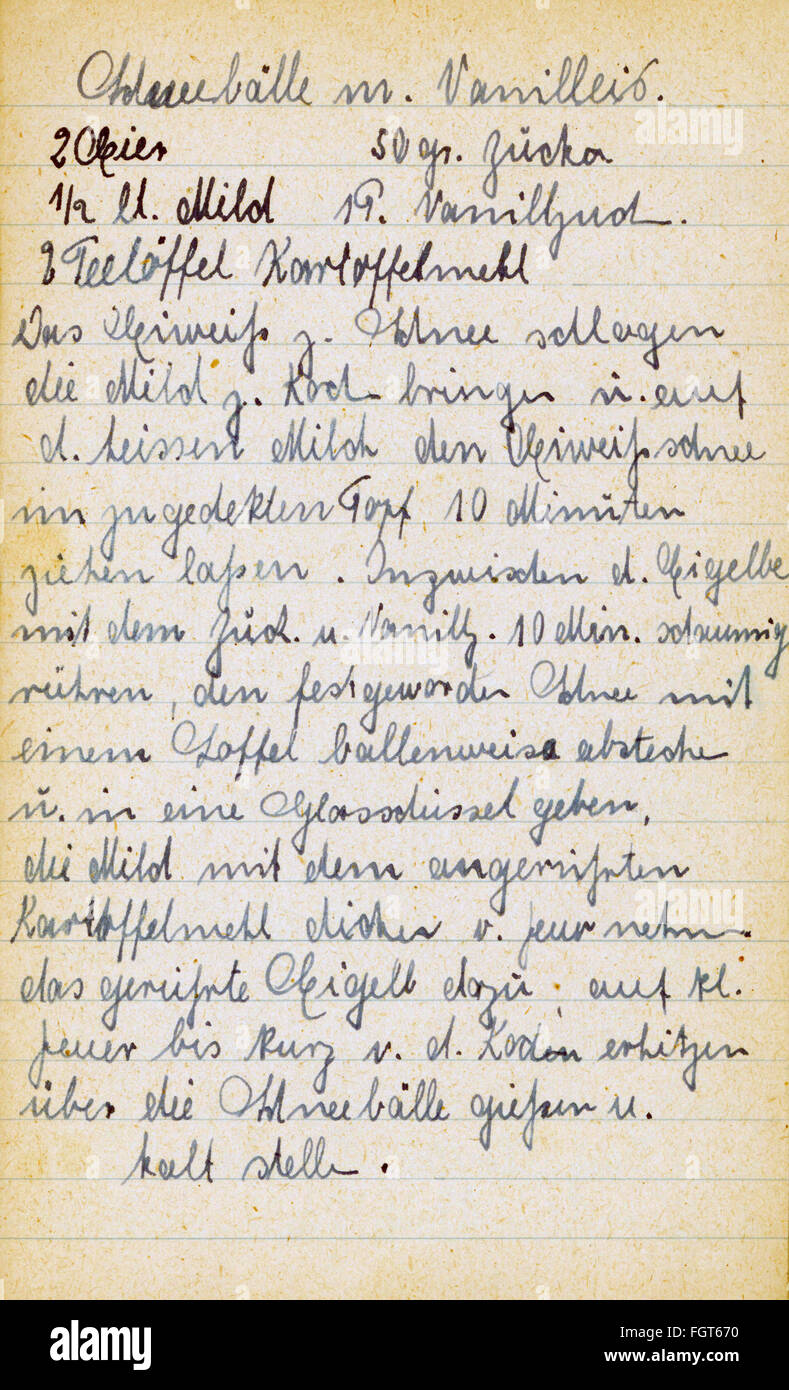 Schneebälle m. Vanilleis.
2 Eier 50 gr. Zucker
1/2 Lt. Milch 1 P. Vanillzuch.
2 Teelöffel Kartoffelmehl
Das Eiweiß z. Schnee schlagen
die Milch z. Koch bringen u. auf
d. heissen Milch den Eiweißschnee
im zugedekten Topf 10 Minuten
ziehen laßen. Inzwischen d. Eigelbe
mit dem Zuck. u. Vanillz. 10 Min. schaumig
rühren, den festgeworden Schnee mit
einem Löffel ballenweise abstechen
u. in eine Glasschüssel geben,
die Milch mit dem angerührten
Kartoffelmehl dicken v. Feur nehm.
das gerührte Eigelb dazu, auf kl.
Feuer bis kurz v. d. Kochen erhitzen
über die Schneebälle gießen u.
kalt stellen.
alamy
alamy
Image ID: FGT670
www.alamy.com